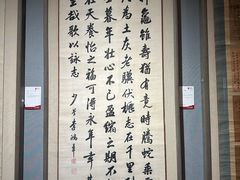 龜雖壽猶有竟時騰蛇乘
為土灰老驥伏櫪志在千里
士暮年壯心不已盈縮之期不
在天養怡之福可得永年幸甚
至哉歌以詠志
少荃李鴻章